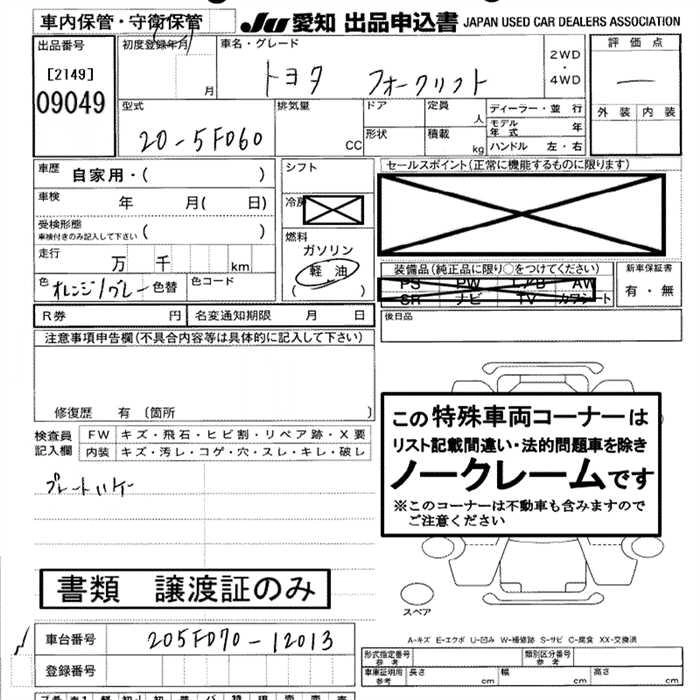 車内保管・守衛保管
JU 愛知 出品申込書 JAPAN USED CAR DEALERS ASSOCIATION
出品番号
[2149]
09049
初度登録年月
月
車名・グレード
トヨタ フォークリフト
2WD
・
4WD
評価点
外装 内装
型式
20-5FD60
排気量
CC
ドア
形状
定員
人
積載
kg
ディーラー・並行
モデル年式 年
ハンドル 左・右
車歴 自家用・( )
車検 年 月( 日)
受検形態
車検付きのみ記入して下さい ( )
走行 万 千 km
色 オレンジ/グレー 色替 色コード
シフト
冷房
燃料
ガソリン
軽油
( )
セールスポイント(正常に機能するものに限ります)
装備品(純正品に限り○をつけてください)
PS PW エアB AW
SR ナビ TV カワシート
新車保証書
有・無
R券 円 名変通知期限 月 日
後日品
注意事項申告欄(不具合内容等は具体的に記入して下さい)
修復歴 有 〔箇所 〕
検査員記入欄
FW キズ・飛石・ヒビ割・リペア跡・X要
内装 キズ・汚レ・コゲ・穴・スレ・キレ・破レ
プレートハケー
この特殊車両コーナーは
リスト記載間違い・法的問題車を除き
ノークレームです
※このコーナーは不動車も含みますので
ご注意ください
書類 譲渡証のみ
スペア
A-キズ E-エクボ U-凹み W-補修跡 S-サビ C-腐食 XX-交換済
車台番号 205FD70-12013
登録番号
形式指定番号
参考
類別区分番号
参考
車庫証明用
参考
長さ cm 幅 cm 高さ cm